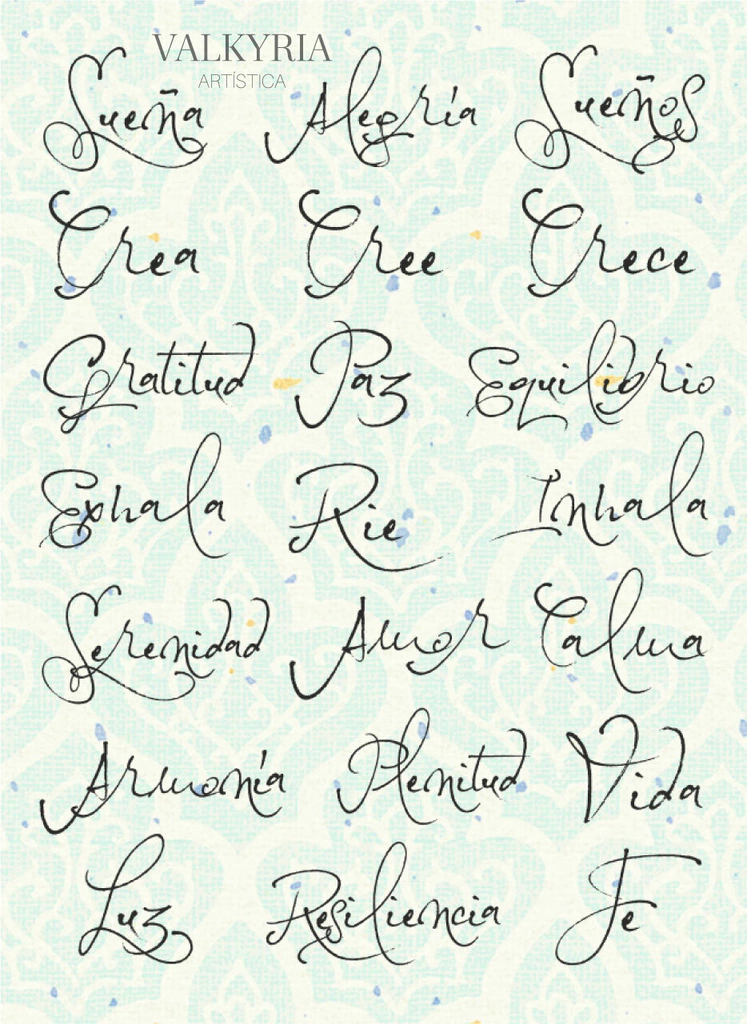 VALKYRIA
ARTÍSTICA
Sueña Alegría Sueños
Crea Cree Crece
Gratitud Paz Equilibrio
Exhala Rie Inhala
Serenidad Amor Calma
Armonía Plenitud Vida
Luz Resiliencia Fe